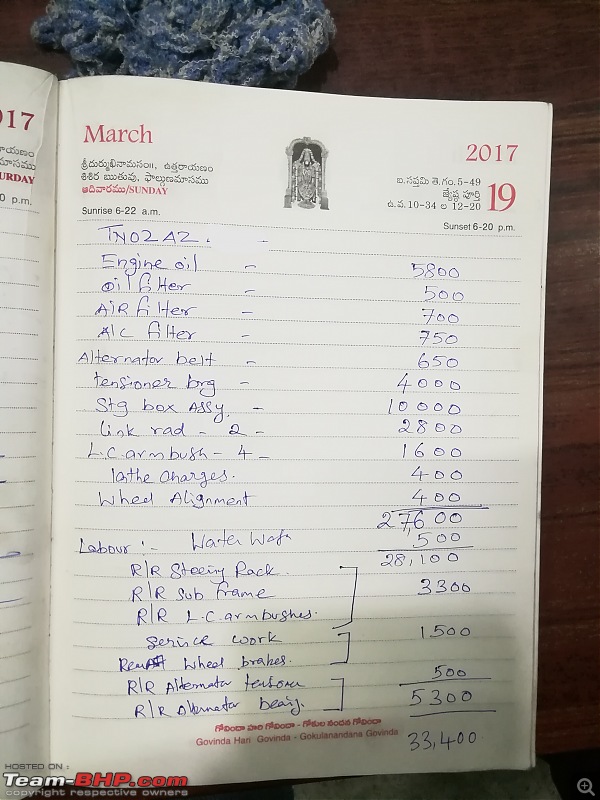 017
March
2017
శ్రీదుర్ముఖినామసం॥, ఉత్తరాయణం
శిశిర ఋతువు, ఫాల్గుణమాసము
ఆదివారము/SUNDAY
ఐ.సప్తమి తె.గం.5-49
జ్యేష్ఠ పూర్తి
ఉ.వ.10-34 ల 12-20
19
URDAY
0 p.m.
Sunrise 6-22 a.m.
Sunset 6-20 p.m.
TN02AZ. -
Engine oil - 5800
oil filter - 500
AIR filter - 700
A/C filter - 750
Alternator belt - 650
tensioner brg - 4000
Stg box Assy. - 10000
link rad - 2 - 2800
L.C.arm bush - 4 - 1600
lathe charges. 400
Wheel Alignment 400
27,600
Labour :- Water Wash 500
28,100
R/R Steeing Rack
R/R Sub frame 3300
R/R L.C.armbushes.
Service work 1500
Rear Wheel brakes.
R/R Alternator tensoner 500
R/R Alternator bearing. 5300
గోవిందా హరి గోవిందా - గోకుల నందన గోవిందా
Govinda Hari Govinda - Gokulanandana Govinda
33,400
HOSTED ON :
Team-BHP.com
copyright respective owners